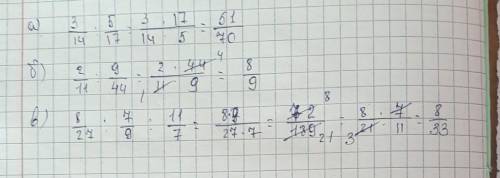 а) 3/14 : 5/17 = 3 · 17 / 14 · 5 = 51/70
б) 2/11 : 9/44 = 2 · 44 4 / 11 , 9 = 8/9
в) 8/27 : 7/9 : 11/7 = 8·9 / 27·7 = 72 8 / 189 21 : = 8 · 7 / 21 3 · 11 = 8/33